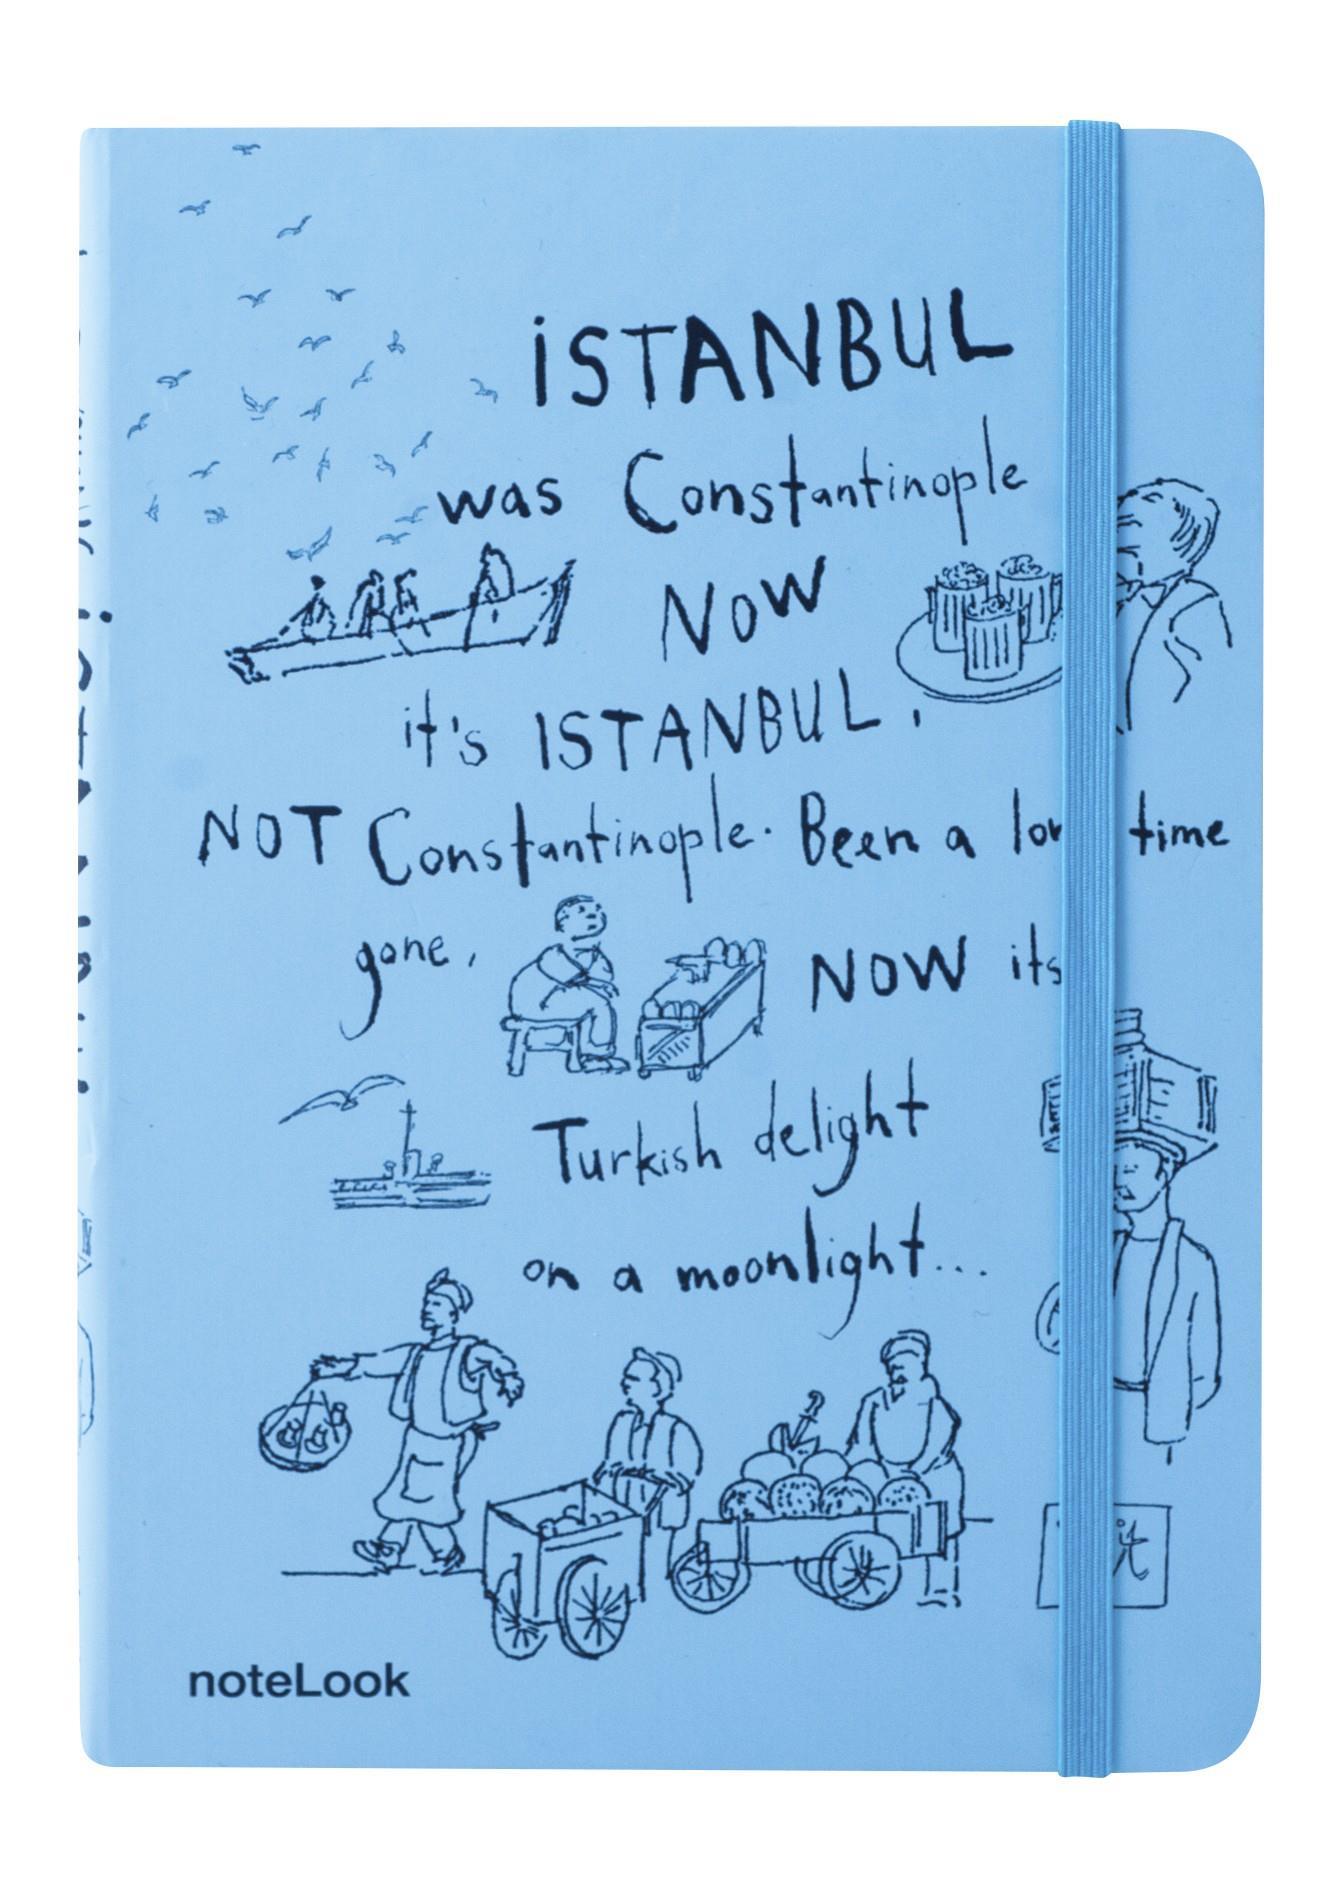 iSTANBUL
was Constantinople
NOW
it's ISTANBUL,
NOT Constantinople. Been a time
gone, NOW its
Turkish delight
on a moonlight...
noteLook